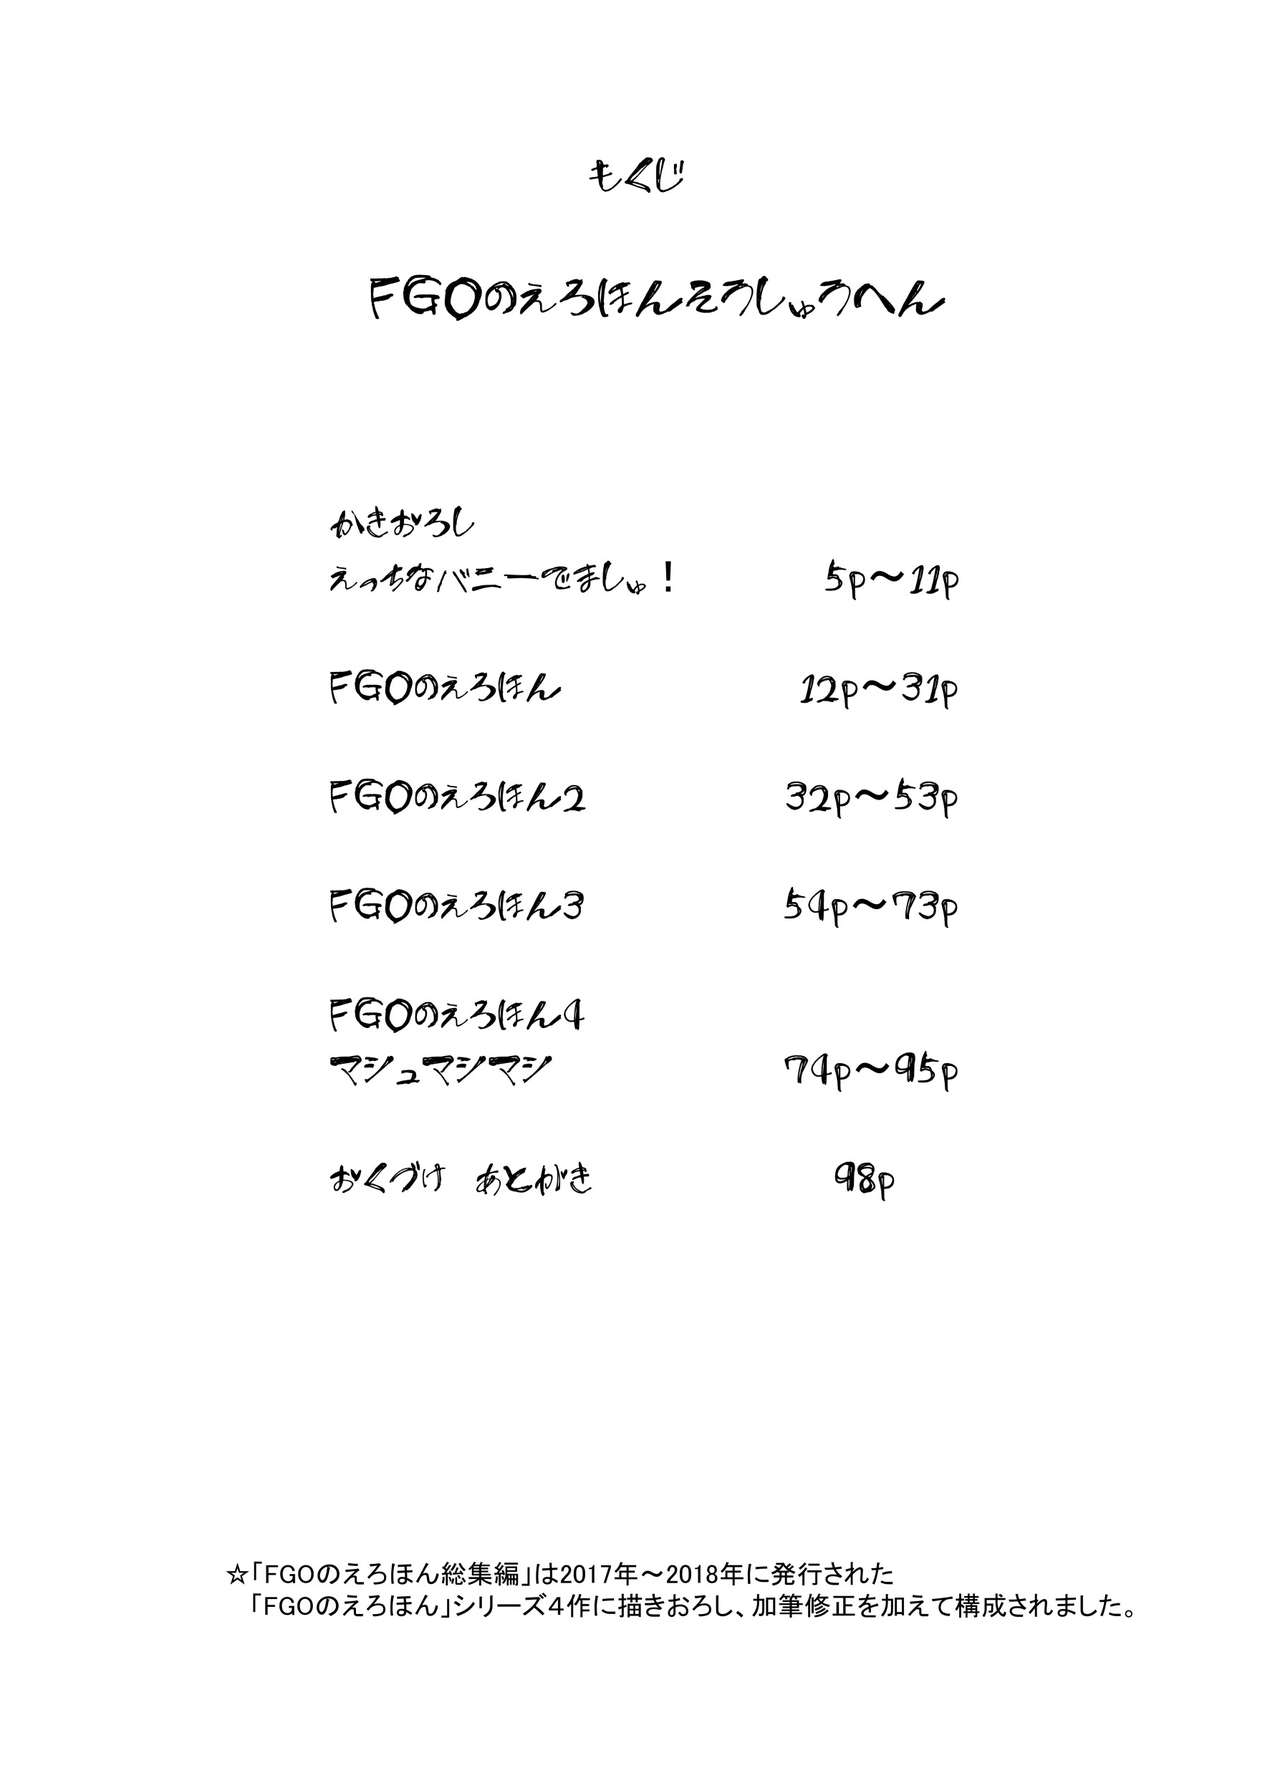 もくじ
FGOのえろほんそうしゅうへん
かきおろし
えっちなバニーでましゅ！ 5p～11p
FGOのえろほん 12p～31p
FGOのえろほん2 32p～53p
FGOのえろほん3 54p～73p
FGOのえろほん4
マシュマシマシ 74p～95p
おくづけ　あとがき 98p
☆「FGOのえろほん総集編」は2017年～2018年に発行された
「FGOのえろほん」シリーズ４作に描きおろし、加筆修正を加えて構成されました。